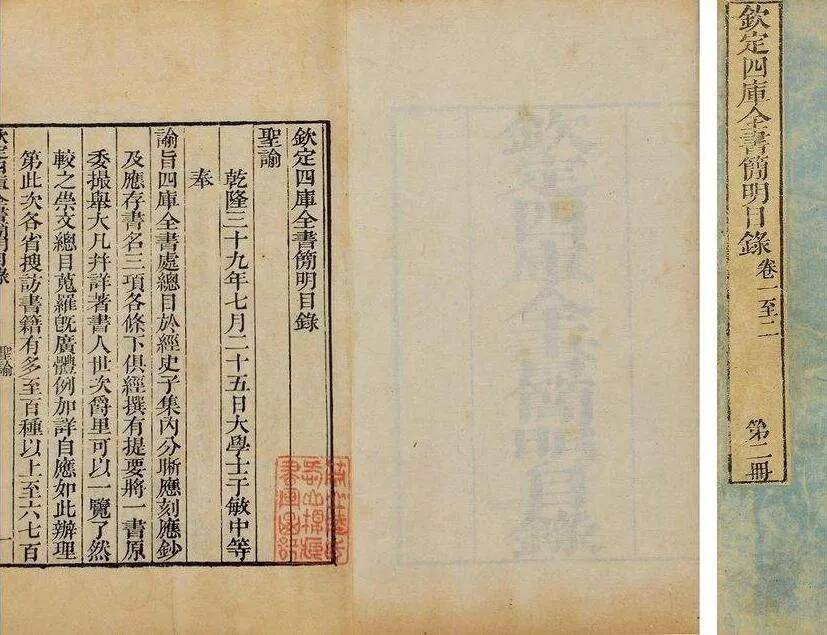 欽定四庫全書簡明目錄 卷一至二 第二冊
欽定四庫全書簡明目錄
欽定四庫全書簡明目錄
聖諭
乾隆三十九年七月二十五日大學士于敏中等
奉
諭旨四庫全書處總目於經史子集內分晰應刻應鈔
及應存書名三項各條下俱經撰有提要將一書原
委撮舉大凡幷詳著書人世次爵里可以一覽了然
較之崇文總目蒐羅旣廣體例加詳自應如此辦理
第此次各省搜訪書籍有多至百種以上至六七百
欽定四庫全書簡明目錄 聖諭 一